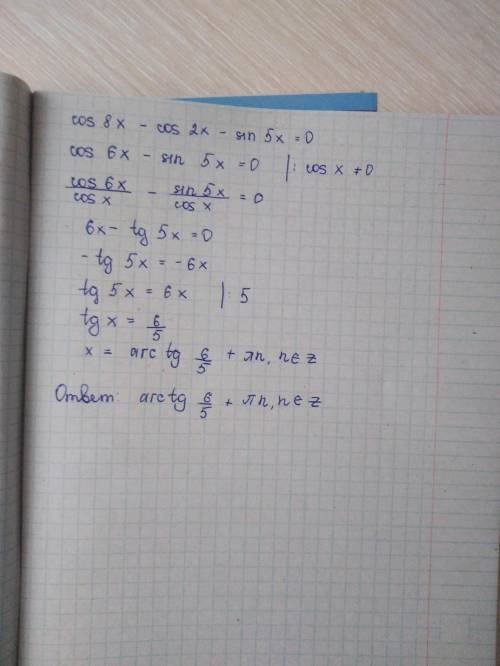 cos 8x - cos 2x - sin 5x = 0
cos 6x - sin 5x = 0 |: cos x ≠ 0
cos 6x / cos x - sin 5x / cos x = 0
6x - tg 5x = 0
- tg 5x = - 6x
tg 5x = 6x |: 5
tg x = 6/5
x = arc tg 6/5 + πn, n ∈ z
Ответ: arc tg 6/5 + πn, n ∈ z